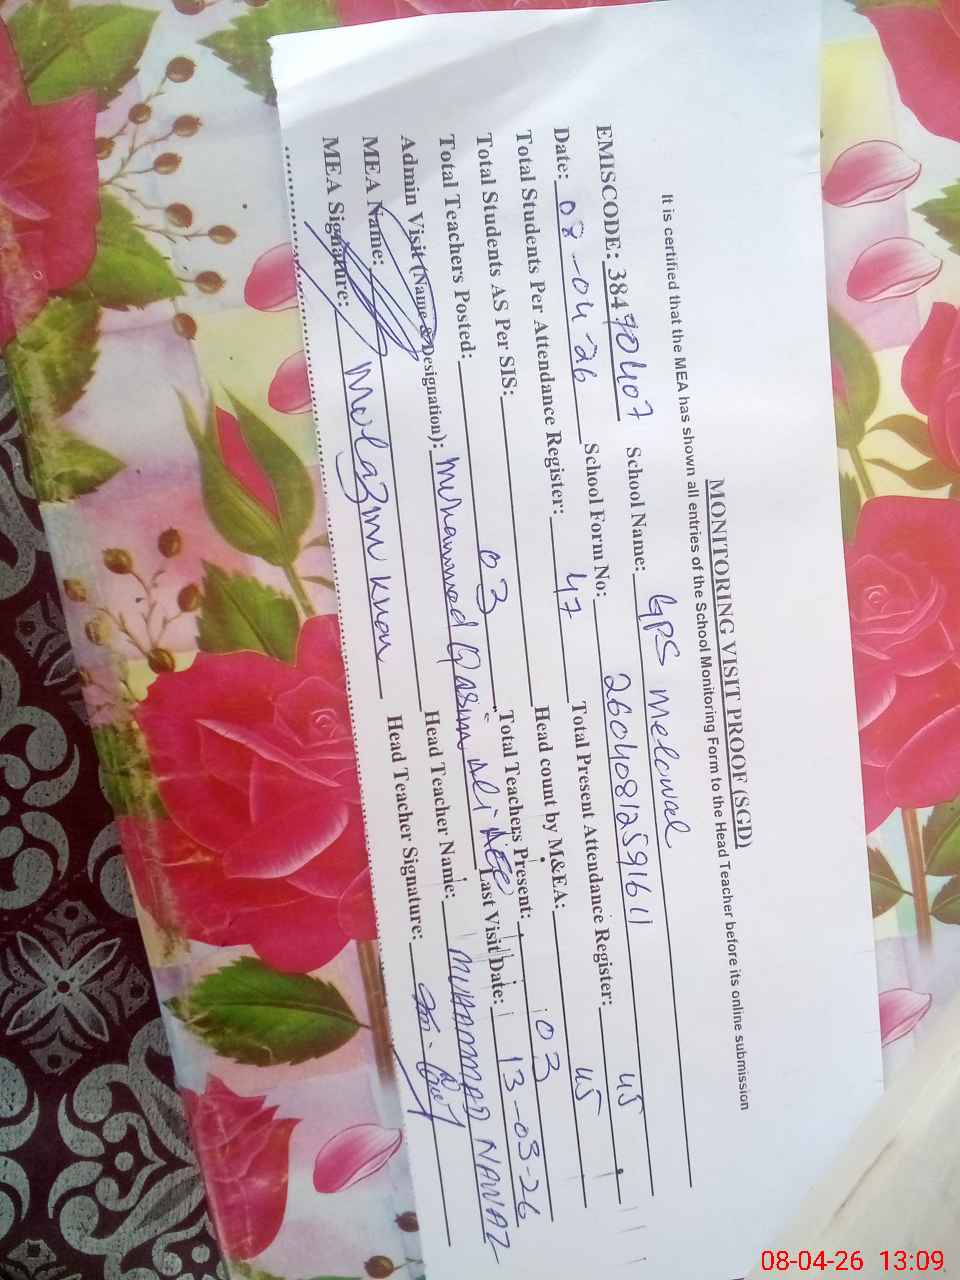 MONITORING VISIT PROOF (SGD)
It is certified that the MEA has shown all entries of the School Monitoring Form to the Head Teacher before its online submission
EMISCODE: 38470407 School Name: GPS Melowal
Date: 08-04-26 School Form No: 26040812591611
Total Students Per Attendance Register: 47 Total Present Attendance Register: 45
Total Students AS Per SIS: Head count by M&EA: 45
Total Teachers Posted: 03 Total Teachers Present: 03
Admin Visit (Name & Designation): Muhammad Qasim Ali AEO Last Visit Date: 13-03-26
MEA Name: Head Teacher Name: MUHAMMAD NAWAZ
MEA Signature: Khan Head Teacher Signature:
08-04-26 13:09